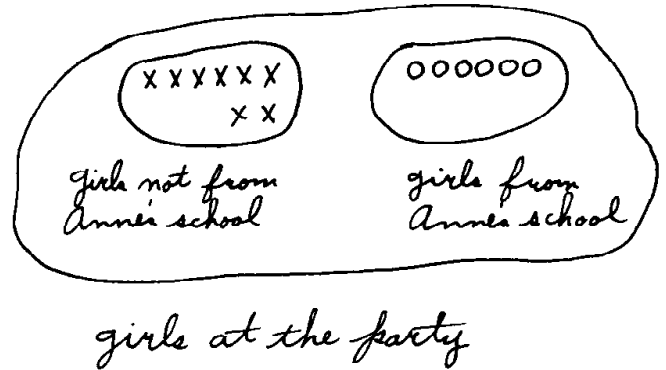 xxxxxx
xx
oooooo
girls not from
Anne's school
girls from
Anne's school
girls at the party